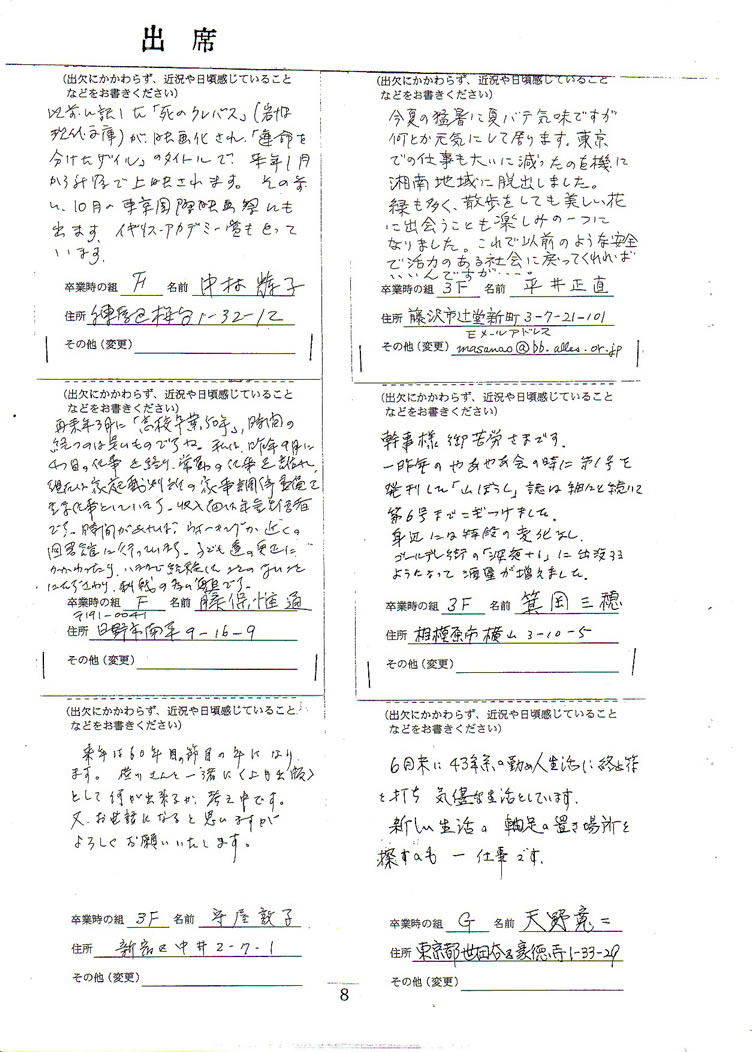 出席
(出欠にかかわらず、近況や日頃感じていること
などをお書きください)
以前に訳した「死のクレバス」(岩波
現代文庫)が、映画化され、「運命を
分けたザイル」のタイトルで、来年1月
から
上映されます。その前
に、10月の東京国際映画祭にも
出ます。イギリス・アカデミー賞もとって
います。
卒業時の組 F 名前 中村 輝子
住所 練馬区桜台1-32-12
その他(変更)
(出欠にかかわらず、近況や日頃感じていること
などをお書きください)
再来年3月に「高校卒業50年」、時間の
経つのは早いものですね。私は、昨年9月に
の仕事を終り、常勤の仕事を離れ、
現在は家庭裁判所の家事調停委員
です。時間があれば、ウォーキングか、近くの
図書館に行っています。
卒業時の組 F 名前
〒191-0041
住所 日野市南平9-16-9
その他(変更)
(出欠にかかわらず、近況や日頃感じていること
などをお書きください)
来年は60年目の節目の年になり
ます。
さんと一緒に〈上母出版〉
として何が出来るか、考え中です。
又、お世話になると思いますが
よろしくお願いいたします。
卒業時の組 3F 名前 守屋敦子
住所 新宿区中井2-7-1
その他(変更)
(出欠にかかわらず、近況や日頃感じていること
などをお書きください)
今夏の猛暑に夏バテ気味ですが
何とか元気にして居ります。東京
での仕事も大いに減ったのを機に
湘南地域に脱出しました。
緑も多く、散歩をしても美しい花
に出会うことも楽しみの一つに
なりました。これで以前のような安全
で活力のある社会に戻ってくれれば
いいんですが・・・・。
卒業時の組 3F 名前 平井正直
住所 藤沢市辻堂新町3-7-21-101
Eメールアドレス
その他(変更) masanao@bb.alles.or.jp
(出欠にかかわらず、近況や日頃感じていること
などをお書きください)
幹事様御苦労さまです。
一昨年のやあやあ会の時に第1号を
発刊した「山ぼうし」誌は細々と続いて
第6号までこぎつけました。
身辺には特段の変化なし。
ゴールデン街の「深夜+1」に出没する
ようになって酒量が増えました。
卒業時の組 3F 名前 箕岡三穂
住所 相模原市横山3-10-5
その他(変更)
(出欠にかかわらず、近況や日頃感じていること
などをお書きください)
6月末に43年余の勤め人生活に終止符
を打ち 気侭な生活をしています。
新しい生活の 軸足の置き場所を
探すのも 一仕事です。
卒業時の組 G 名前 天野亮二
住所 東京都世田谷区豪徳寺1-33-29
その他(変更)
8